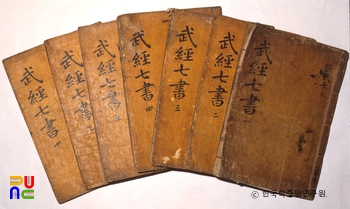 武經七書
武經七書
武經七書
武經七書 四
武經七書 三
武經七書 二
武經七書 一
PUNC
© 한국학중앙연구원